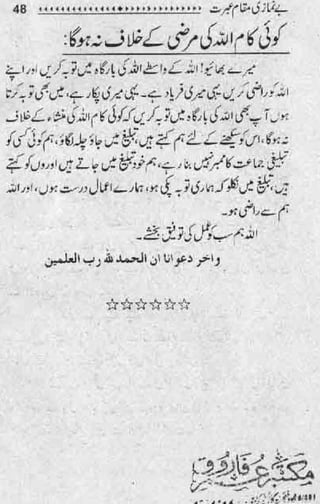 بے نمازی مقام عبرت 48
کوئی کام اللہ کی مرضی کے خلاف نہ ہوگا:
میرے بھائیو! اللہ کے واسطے اللہ کی بارگاہ میں توبہ کریں اور اپنے
اللہ کو راضی کریں یہی میری فریاد ہے۔ یہی میری پکار ہے، میں بھی توبہ کرتا
ہوں آپ بھی اللہ کی بارگاہ میں توبہ کریں کہ کوئی کام اللہ کی منشاء کے خلاف
نہ ہوگا، اس کو سیکھنے کے لئے ہم کہتے ہیں، تبلیغ میں جاؤ چلہ لگاؤ، ہم کوئی کسی کو
تبلیغی جماعت کا ممبر نہیں بنا رہے، ہم خود تبلیغ میں جاتے ہیں اوروں کو کہتے
ہیں، تبلیغ میں نکلو کہ ہماری توبہ پکی ہو، ہمارے اعمال درست ہوں، اور اللہ
ہم سے راضی ہو۔
اللہ ہم سب کو عمل کی توفیق بخشے۔
واخر دعوانا ان الحمد للہ رب العلمین
☆☆☆☆☆☆
مکتبہ عمر فاروق